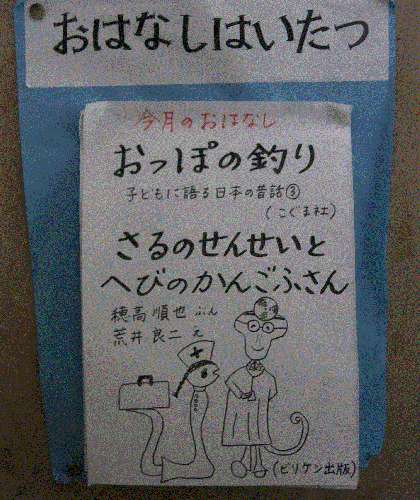 おはなしはいたつ
今月のおはなし
おっぽの釣り
子どもに語る日本の昔話③
(こぐま社)
さるのせんせいと
へびのかんごふさん
穂高順也 ぶん
荒井良二 え
(ビリケン出版)